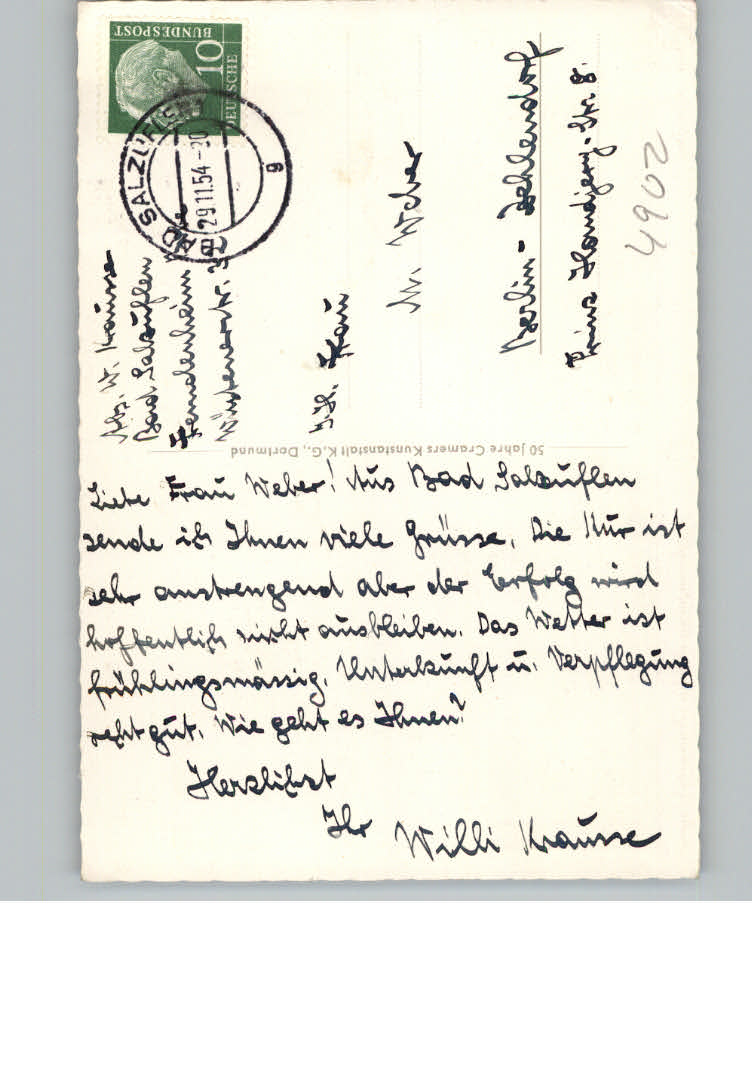 DEUTSCHE
BUNDESPOST
10
BAD SALZUFLEN
29.11.54-20
g
Abs. W. Krausse
Bad Salzuflen
Fremdenheim
Wüstenerstr. 32
S.H. Frau
M. Weber
Berlin-Zehlendorf
Prinz Handjery-Str. 8.
4902
50 Jahre Cramers Kunstanstalt K.G., Dortmund
Liebe Frau Weber! Aus Bad Salzuflen
sende ich Ihnen viele Grüsse. Die Kur ist
sehr anstrengend aber der Erfolg wird
hoffentlich nicht ausbleiben. Das Wetter ist
frühlingsmässig. Unterkunft u. Verpflegung
recht gut. Wie geht es Ihnen?
Herzlichst
Ihr Willi Krausse